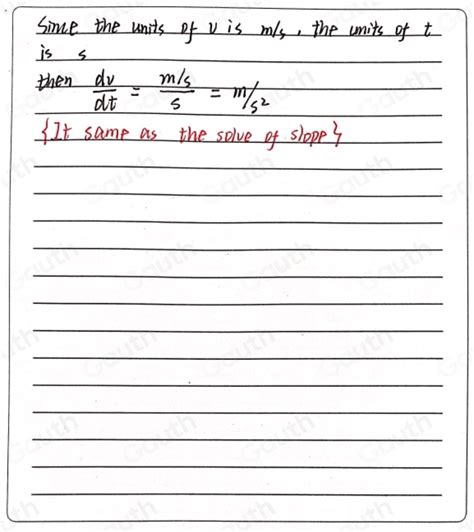 Since the units of v is m/s, the units of t
is s
then dv/dt = m/s/s = m/s²
{It same as the solve of slope}